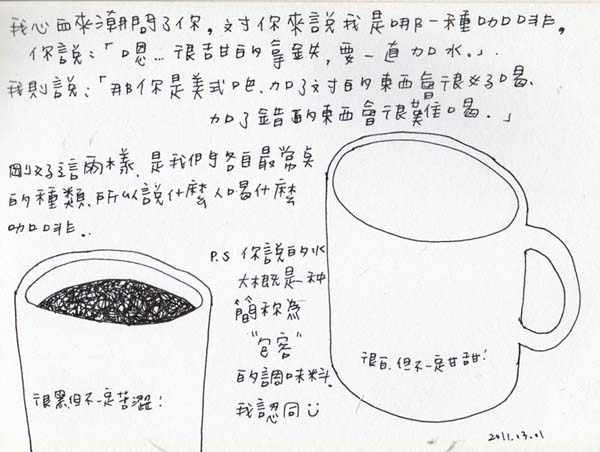 我心血來潮問了你,對你來說我是哪一種咖啡,
你說:「嗯… 很甜的拿鐵,要一直加水.」.
我則說:「那你是美式吧.加了對的東西會很好喝.
加了錯的東西會很難喝.」
剛好這兩樣.是我們各自最常點
的種類.所以說什麼人喝什麼
咖啡..
P.S 你說的水
大概是一種
簡称為
"包容"
的調味料.
我認同
很黑但不一定苦澀!
很白.但不一定甘甜!
2011.03.01